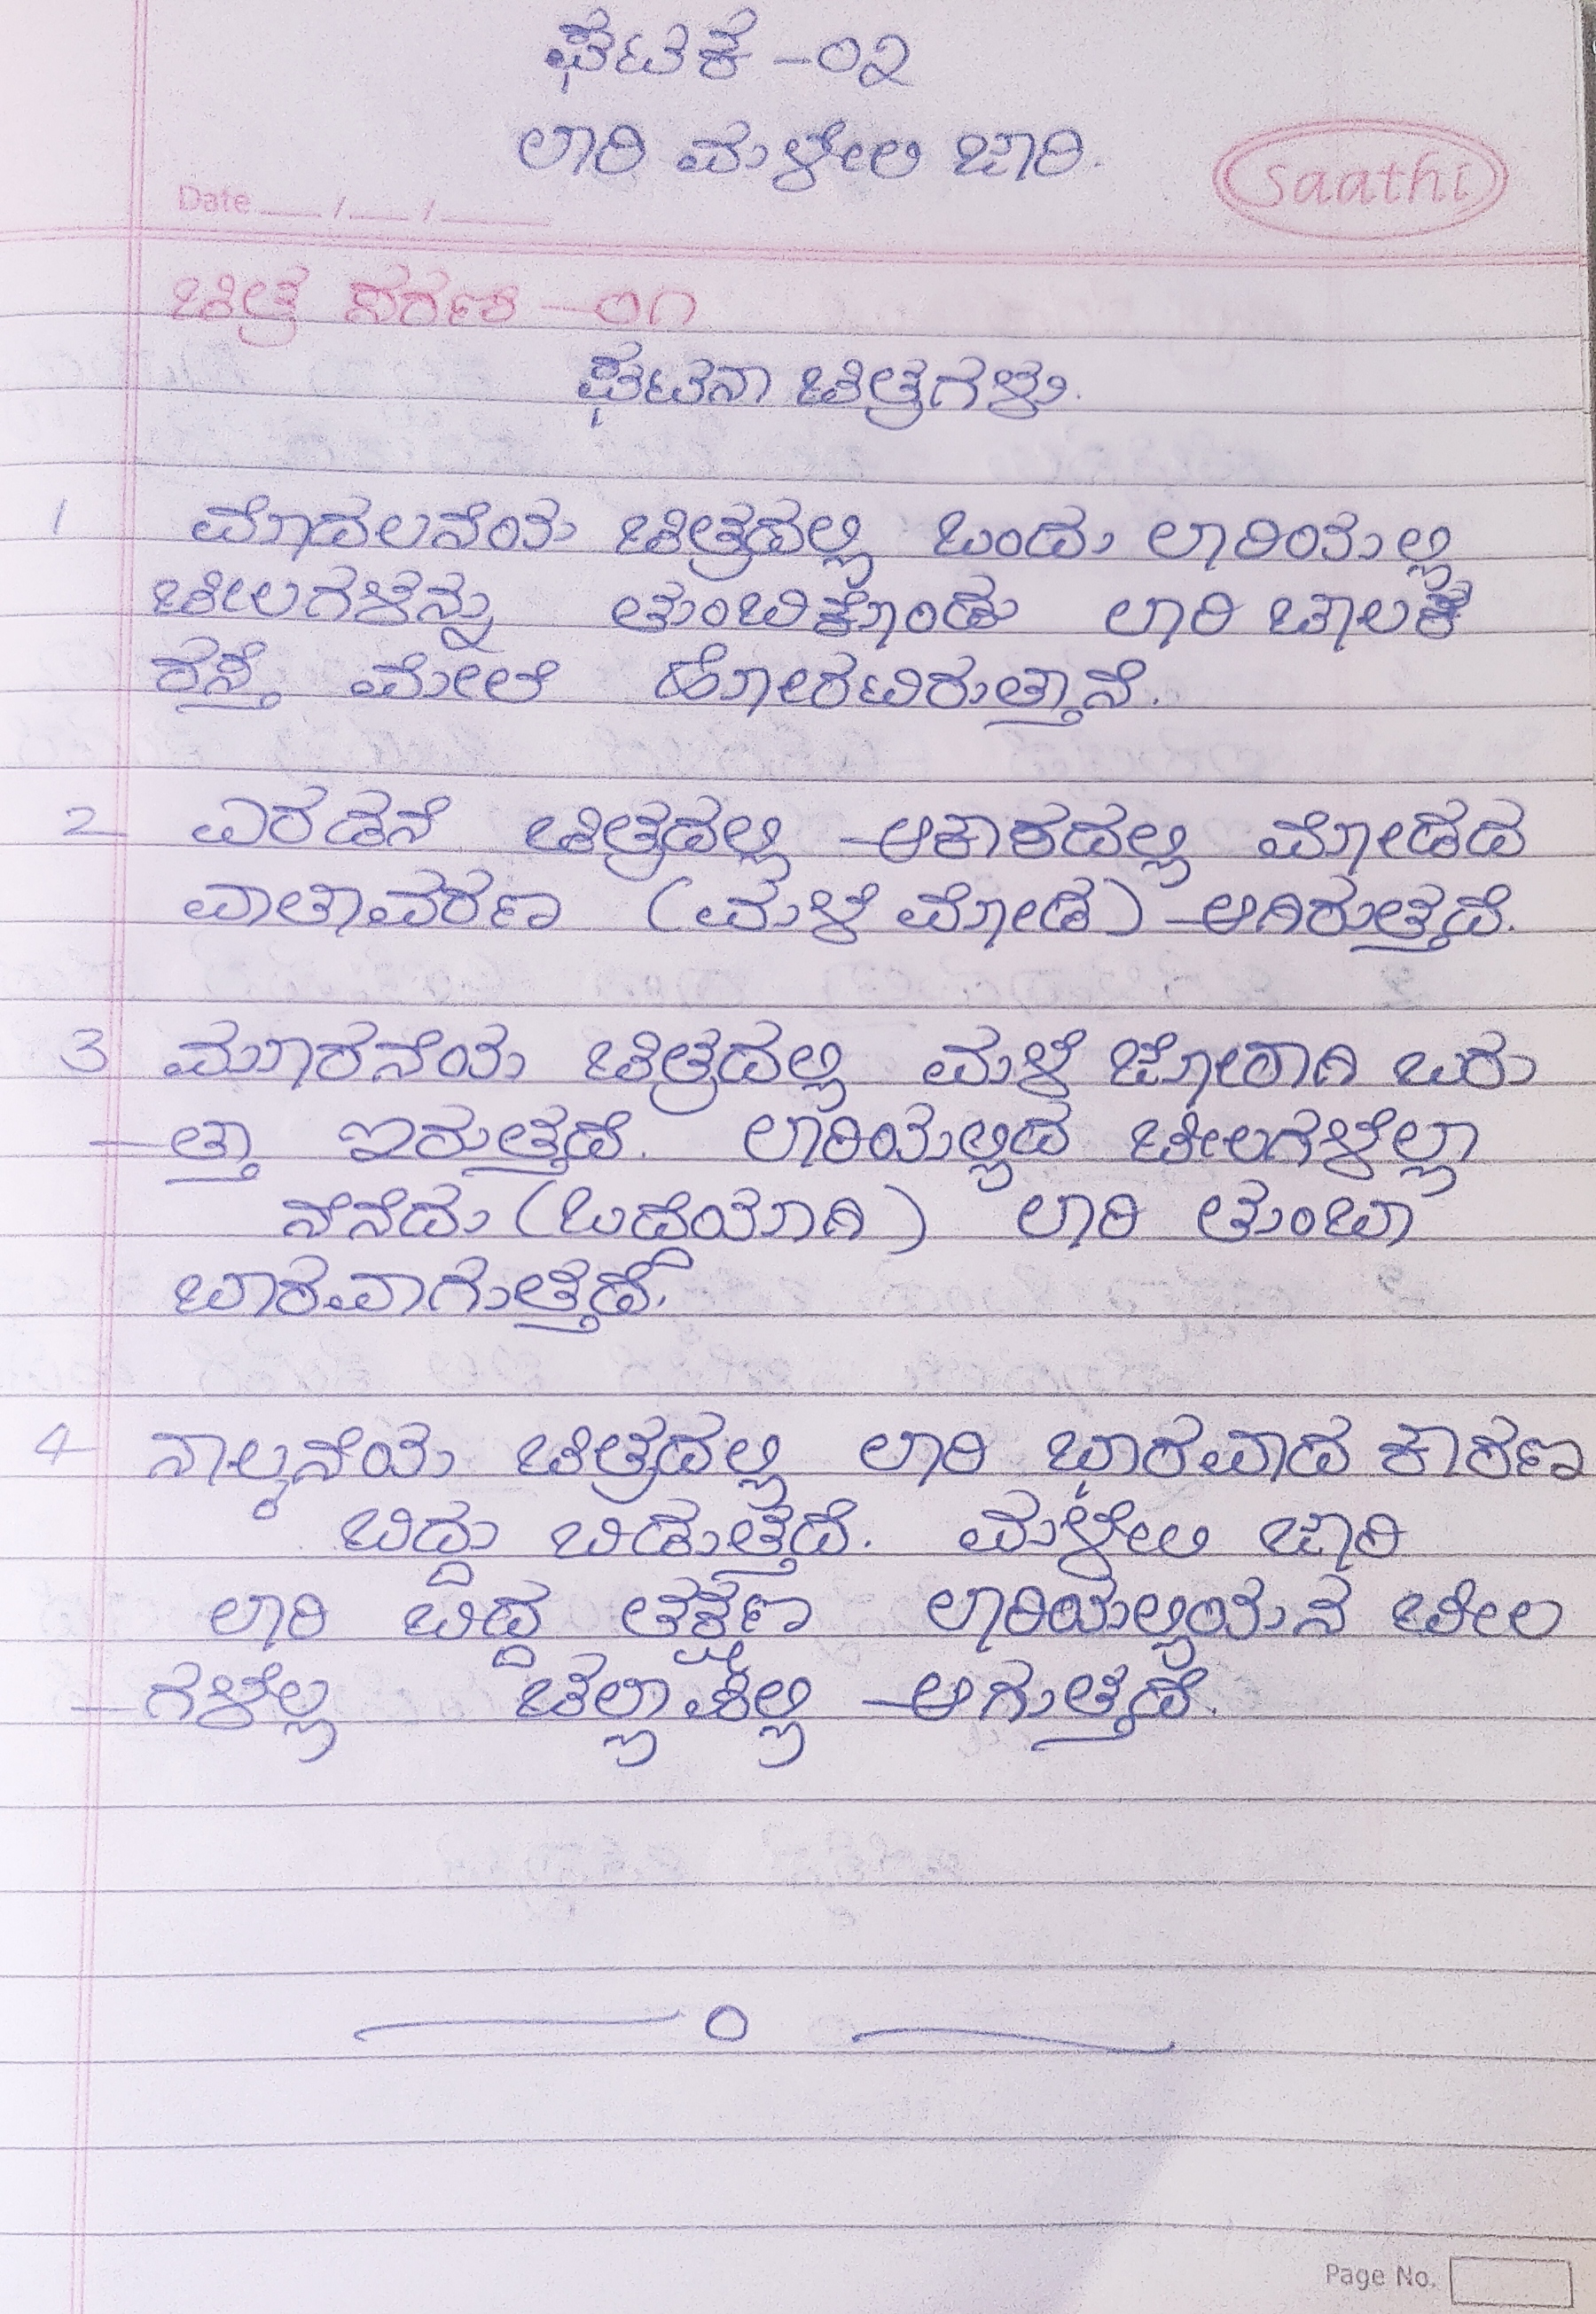 ಘಟಕ -೦೨
ಲಾರಿ ಮಳೇಲಿ ಜಾರಿ.
saathi
Date __/__/____
ಚಿತ್ರ ಸರಣಿ -೦೧
ಘಟನಾ ಚಿತ್ರಗಳು.
1 ಮೊದಲನೆಯ ಚಿತ್ರದಲ್ಲಿ ಒಂದು ಲಾರಿಯಲ್ಲಿ
ಚೀಲಗಳನ್ನು ತುಂಬಿಕೊಂಡು ಲಾರಿ ಚಾಲಕ
ರಸ್ತೆ ಮೇಲೆ ಹೋರಟಿರುತ್ತಾನೆ.
2 ಎರಡನೆ ಚಿತ್ರದಲ್ಲಿ ಆಕಾಶದಲ್ಲಿ ಮೋಡದ
ವಾತಾವರಣ (ಮಳೆ ಮೋಡ) ಆಗಿರುತ್ತದೆ.
3 ಮೂರನೆಯ ಚಿತ್ರದಲ್ಲಿ ಮಳೆ ಜೋರಾಗಿ ಬರು
-ತ್ತಾ ಇರುತ್ತದೆ. ಲಾರಿಯಲ್ಲಿದ ಚೀಲಗಳೆಲ್ಲಾ
ನೆನೆದು (ಒದ್ದೆಯಾಗಿ) ಲಾರಿ ತುಂಬಾ
ಬಾರವಾಗುತ್ತದೆ.
4 ನಾಲ್ಕನೆಯ ಚಿತ್ರದಲ್ಲಿ ಲಾರಿ ಭಾರವಾದ ಕಾರಣ
ಬಿದ್ದು ಬಿಡುತ್ತದೆ. ಮಳೇಲಿ ಜಾರಿ
ಲಾರಿ ಬಿದ್ದ ತಕ್ಷಣ ಲಾರಿಯಲ್ಲಿಯನ ಚೀಲ
-ಗಳೆಲ್ಲ ಚೆಲ್ಲಾಪಿಲ್ಲಿ ಆಗುತ್ತದೆ.
Page No.